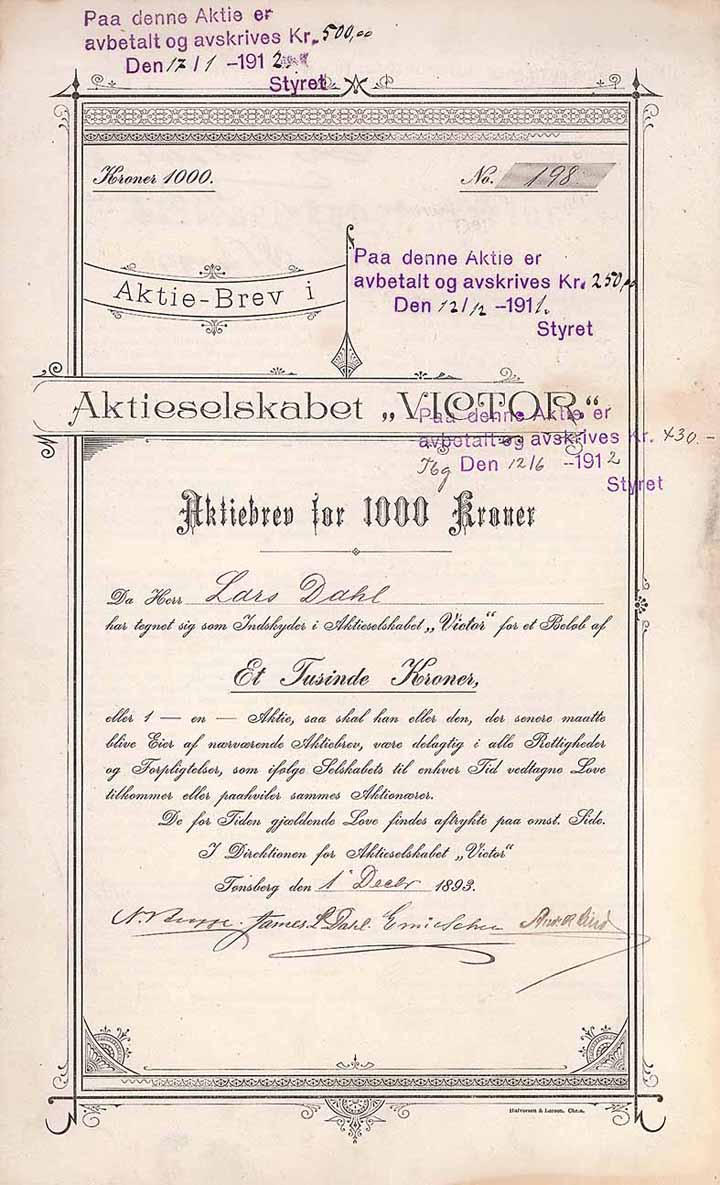 Paa denne Aktie er
avbetalt og avskrives Kr. 500,00
Den 17/1 -1912
Styret
Kroner 1000.
No. 198
Paa denne Aktie er
avbetalt og avskrives Kr. 250,00
Den 12/12 -1911.
Styret
Aktie-Brev i
Aktieselskabet „VICTOR“
Paa denne Aktie er
avbetalt og avskrives Kr. 430.-
Tbg Den 12/6 -1912
Styret
Aktiebrev for 1000 Kroner
Da Herr Lars Dahl
har tegnet sig som Indskyder i Aktieselskabet „Victor“ for et Beløb af
Et Tusinde Kroner,
eller 1 — en — Aktie, saa skal han eller den, der senere maatte
blive Eier af nærværende Aktiebrev, være delagtig i alle Rettigheder
og Forpligtelser, som ifølge Selskabets til enhver Tid vedtagne Love
tilkommer eller paahviler sammes Aktionærer.
De for Tiden gjældende Love findes aftrykte paa omst. Side.
I Direktionen for Aktieselskabet „Victor“
Tønsberg den 1' Decbr 1893.
N. Bugge. James. L. Dahl.
Halvorsen & Larsen, Chr.a.